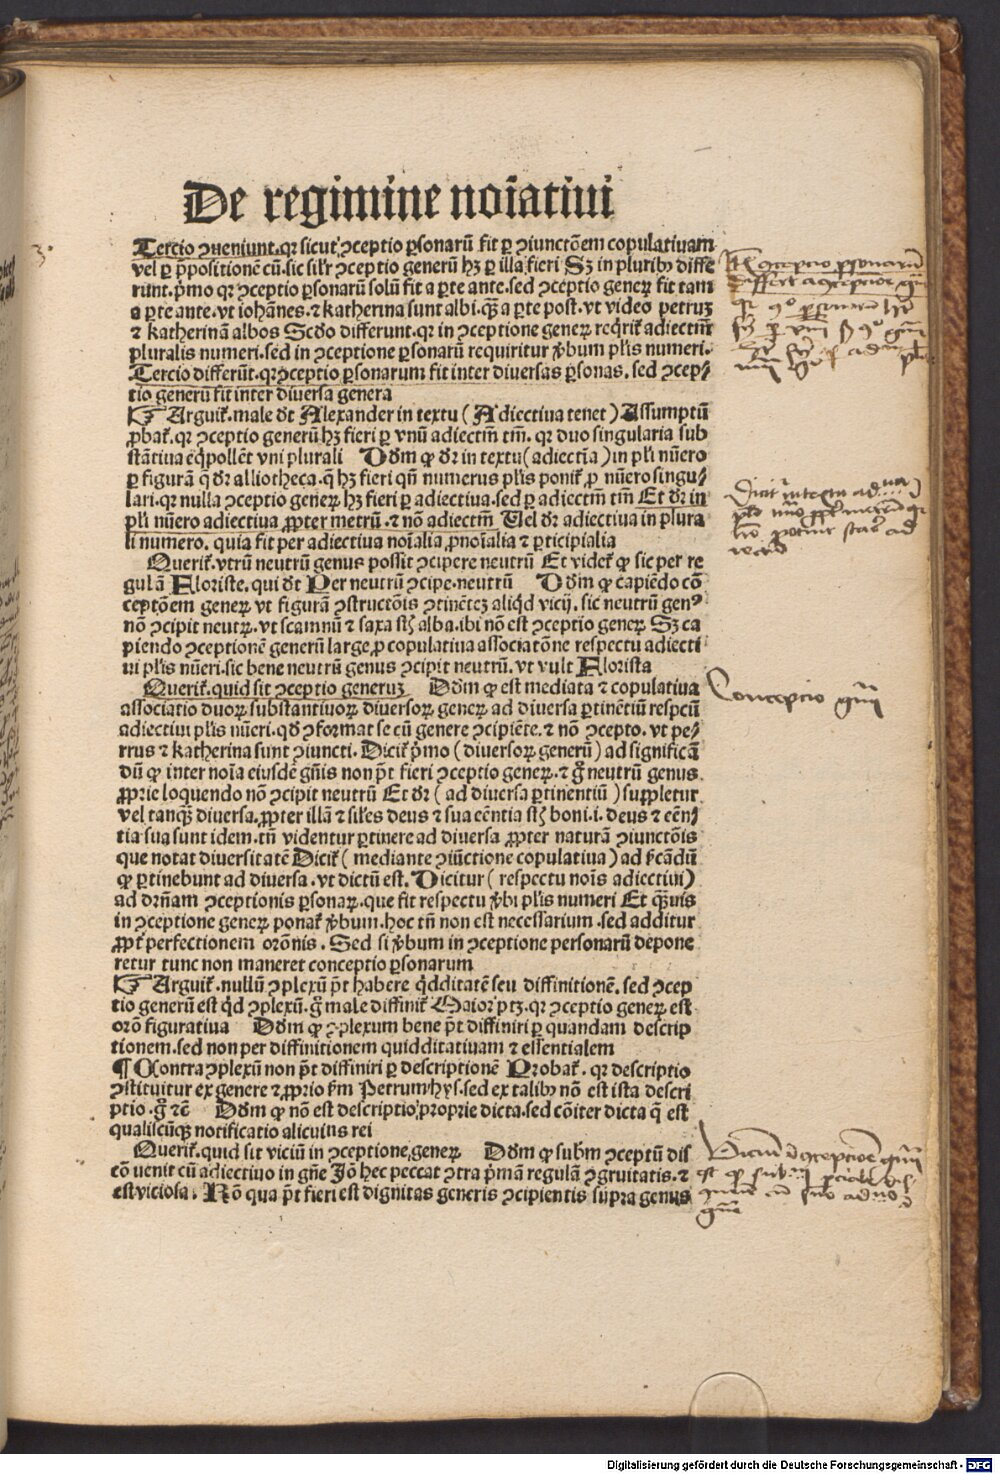 De regimine noīatiui
Tercio ꝯueniunt. qꝛ sicut ꝯceptio ꝑsonarū fit ꝑ ꝯiunctōem copulatiuam
vel ꝑ p̄positionē cū. sic sil'r ꝯceptio generū hꝫ ꝑ illa fieri Sꝫ in pluribꝰ diffe
runt. p̄mo qꝛ ꝯceptio ꝑsonarū solū fit a ꝑte ante. sed ꝯceptio geneꝝ fit tam
a ꝑte ante. vt iohānes. ⁊ katherina sunt albi. qꝫ̄ a ꝑte post. vt video petruꝫ
⁊ katherinā albos Scd̄o differunt. qꝛ in ꝯceptione geneꝝ reqͥrit̄ adiectiuū
pluralis numeri. sed in ꝯceptione ꝑsonarū requiritur v̄bum pl̄is numeri.
Tercio differūt. qꝛ ꝯceptio ꝑsonarum fit inter diuersas ꝑsonas. sed ꝯcep⸗
tio generū fit inter diuersa genera
☞ Arguit̄. male dt̄ Alexander in textu (Adiectiua tenet) Assumptū
ꝓbat̄. qꝛ ꝯceptio generū hꝫ fieri ꝑ vnū adiectm̄ tm̄. qꝛ duo singularia sub
stātiua eq̄pollēt vni plurali Dd̄m ꝙ dr̄ in textu (adiectīa) in pl̄i nūero
ꝑ figurā q̄ dr̄ alliotheca. q̄ hꝫ fieri qn̄ numerus pl̄is ponit̄ ꝓ nūero singu⸗
lari. qꝛ nulla ꝯceptio geneꝝ hꝫ fieri ꝑ adiectiua. sed ꝑ adiectm̄ tm̄ Et dr̄ in
pl̄i nūero adiectiua ꝓpter metrū. ⁊ nō adiectm̄ Uel dr̄ adiectiua in plura
li numero. quia fit per adiectiua noīalia ꝓnoīalia ⁊ ꝑticipialia
Querit̄. vtrū neutrū genus possit ꝯcipere neutrū Et videt̄ ꝙ sic per re
gulā Floriste. qui dt̄ Per neutrū ꝯcipe neutrū Dd̄m ꝙ capiēdo cō
ceptōem geneꝝ vt figurā ꝯstructōis ꝯtinētē aliqd vicij. sic neutrū genꝰ
nō ꝯcipit neutꝝ. vt scamnū ⁊ saxa st̄ alba. ibi nō est ꝯceptio geneꝝ Sꝫ ca
piendo ꝯceptionē generū large. ꝓ copulatiua associatōne respectu adiecti
ui pl̄is nūeri. sic bene neutrū genus ꝯcipit neutrū. vt vult Florista
Querit̄. quid sit ꝯceptio generuꝫ Dd̄m ꝙ est mediata ⁊ copulatiua
associatio duoꝝ substantiuoꝝ diuersoꝝ geneꝝ ad diuersa ꝑtinētiū respcū
adiectiui pl̄is nūeri. qd̄ ꝯformat se cū genere ꝯcipiēte. ⁊ nō ꝯcepto. vt pe⸗
trus ⁊ katherina sunt ꝯiuncti. Dicit̄ p̄mo (diuersoꝝ generū) ad significā
dū ꝙ inter noīa eiusdē gn̄is non pt̄ fieri ꝯceptio geneꝝ. ⁊ g̊ neutrū genus
ꝓprie loquendo nō ꝯcipit neutrū Et dr̄ (ad diuersa ꝑtinentiū) suppletur
vel tanqꝫ diuersa. ꝓpter illā ⁊ sil'es deus ⁊ sua eēntia st̄ boni. i. deus ⁊ eēn⸗
tia sua sunt idem. tn̄ videntur ꝑtinere ad diuersa ꝓpter naturā ꝯiunctōis
que notat diuersitatē Dicit̄ (mediante ꝯiūctione copulatiua) ad
ꝙ ꝑtinebunt ad diuersa. vt dictū est. Dicitur (respectu noīs adiectiui)
ad dr̄n̄am ꝯceptionis ꝑsonaꝝ. que fit respectu v̄bi pl̄is numeri Et qꝫ̄uis
in ꝯceptione geneꝝ ponat̄ v̄bum. hoc tn̄ non est necessarium. sed additur
ꝓpt̄ perfectionem orōnis. Sed si v̄bum in ꝯceptione personarū depone
retur tunc non maneret conceptio ꝑsonarum
☞ Arguit̄. nullū ꝯplexū pt̄ habere qͥdditatē seu diffinitionē. sed ꝯcep
tio generū est qͥd ꝯplexū. g̊ male diffinit̄ Maior ptꝫ. qꝛ ꝯceptio geneꝝ est
orō figuratiua Dd̄m ꝙ ꝯplexum bene pt̄ diffiniri ꝑ quandam descrip
tionem. sed non per diffinitionem quidditatiuam ⁊ essentialem
¶ Contra ꝯplexū non pt̄ diffiniri ꝑ descriptionē Probat̄. qꝛ descriptio
ꝯstituitur ex genere ⁊ ꝓprio fm̄ Petrum hys. sed ex talibꝰ nō est ista descri
ptio. g̊ ⁊c̄ Dd̄m ꝙ nō est descriptio proprie dicta. sed cōiter dicta q̄ est
qualiscūqꝫ notificatio alicuius rei
Querit̄. quid sit viciū in ꝯceptione geneꝝ Dd̄m ꝙ subm̄ ꝯceptū dis
cōuenit cū adiectiuo in gn̄e Iō hec peccat ꝯtra p̄mā regulā ꝯgruitatis. ⁊
est viciosa. Rō qua pt̄ fieri est dignitas generis ꝯcipientis supra genus
Concepcio gn̄m
Digitalisierung gefördert durch die Deutsche Forschungsgemeinschaft - DFG